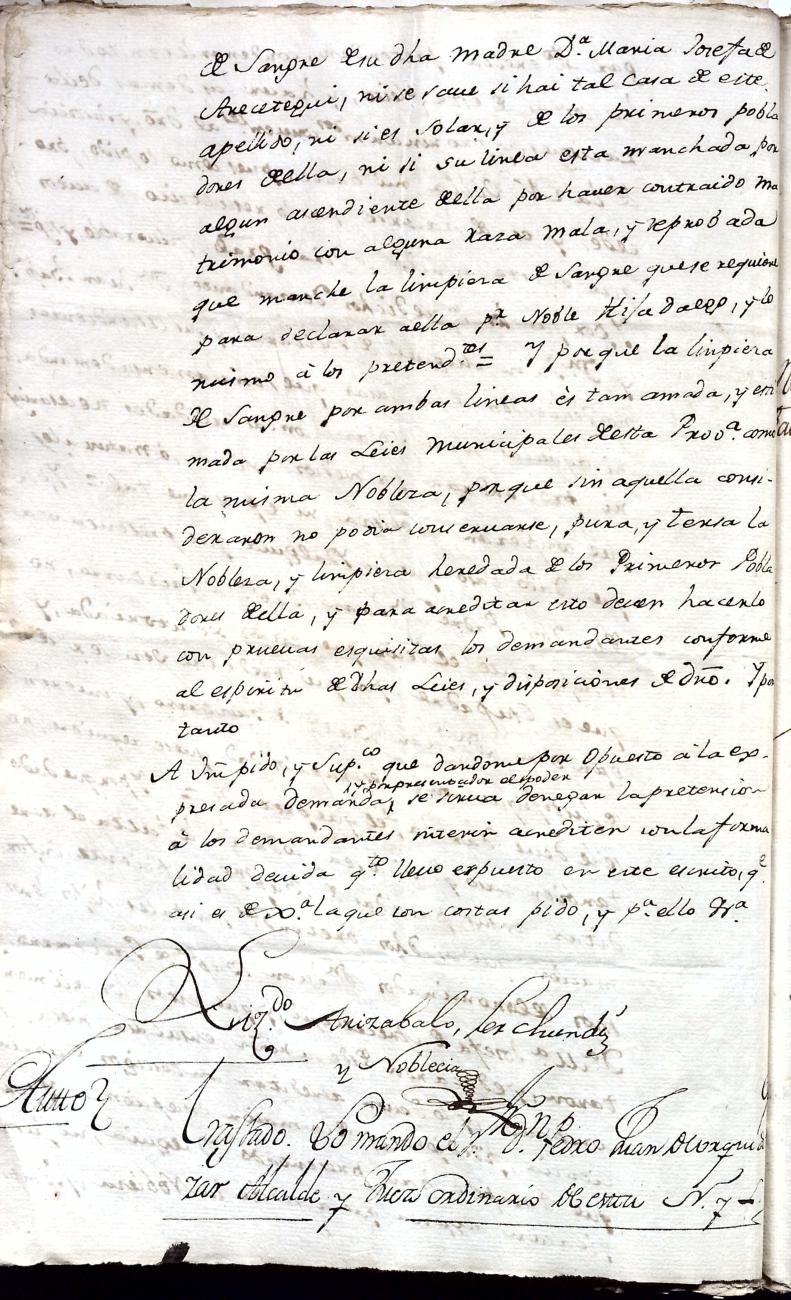 de Sangre de su dha madre D.ª Maria Josefa de
Areceteguí, ni se save si hai tal Casa de este
apellido, ni si es Solar, y de los primeros pobla
dores della, ni si su linea esta manchada por
algun ascendiente della por haver contraido ma
trimonio con alguna raza mala, y reprobada
que manche la limpieza de Sangre que se requiere
para declarar aella pr. Noble Hijadalgo, y lo
mismo à los pretend.tes = Y porque la linpieza
de Sangre por ambas lineas ès tam amada, y esti
mada por las Leies municipales desta Prov.ª como
la misma Nobleza, porque sin aquella consi-
deraron no podia conservarse, pura, y tersa la
Nobleza, y limpieza heredada de los Primeros Pobla
dores della, y para acreditar esto deven hacerlo
con pruevas esquisitas los demandantes conforme
al espiritu de dhas Leies, y disposiciones de dro. Y por
tanto
A Vm pido, y Sup.co que dandome por Opuesto à la ex-
y por presentador el poder
presada demanda, se sirva denegar la pretension
à los demandantes interin acrediten con la forma
lidad devida q.to llevo expuesto en este escrito, q.e
asi es de xx.ª la que con costas pido, y p.ª ello &.ª
Liz.do Arizabalo, Lerchundi
y Noblecia
Auto
Traslado. Lo mando el s.r D. Pedro Juan de
zar Alcalde y Juez ordinario de esta N. y L.